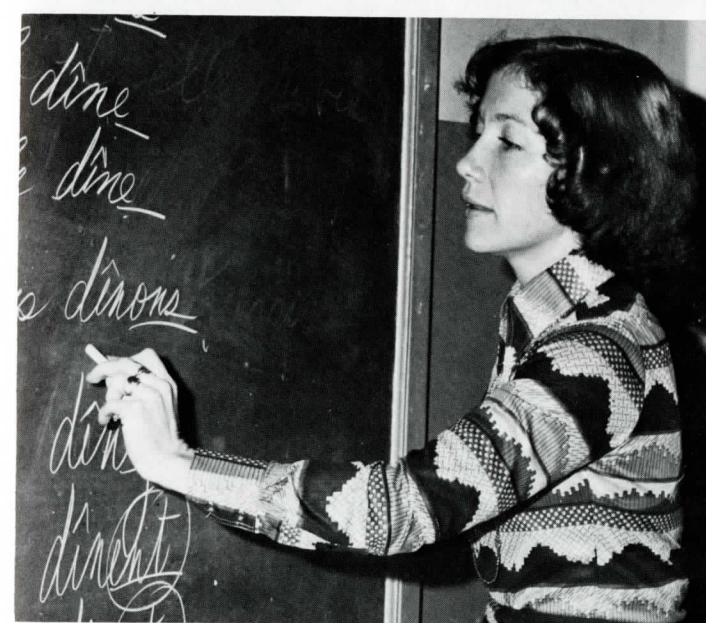 dîne
dîne
dînons
dîn
dînent